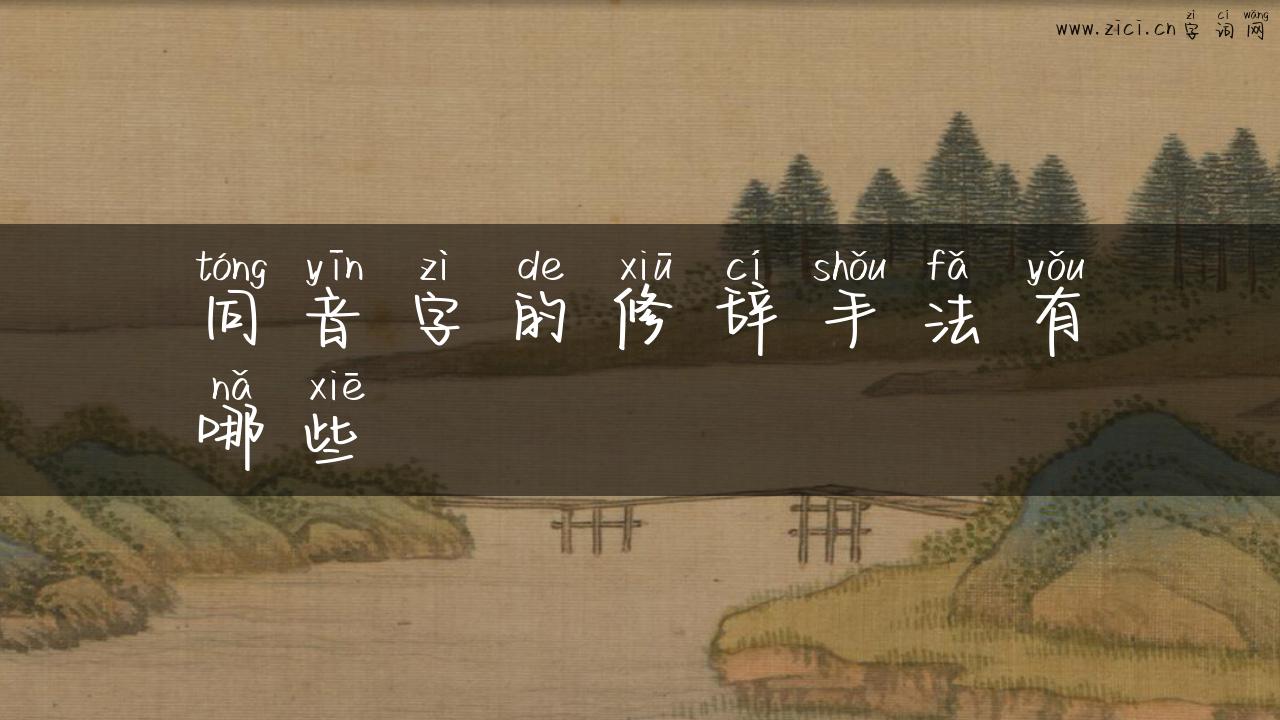 zì cí wǎng
www.zici.cn 字词网
tóng yīn zì de xiū cí shǒu fǎ yǒu
同音字的修辞手法有
nǎ xiē
哪些